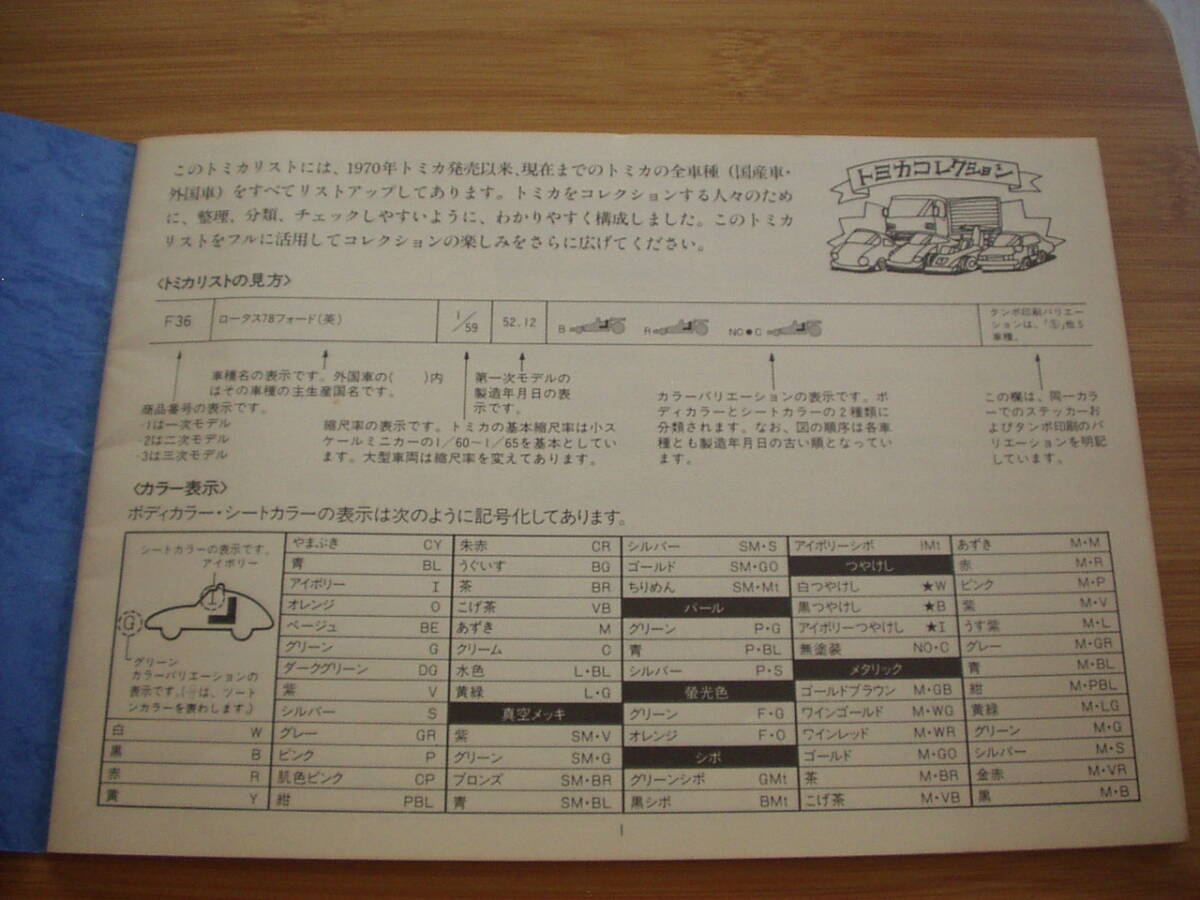 このトミカリストには、1970年トミカ発売以来、現在までのトミカの全車種（国産車・
外国車）をすべてリストアップしてあります。トミカをコレクションする人々のため
に、整理、分類、チェックしやすいように、わかりやすく構成しました。このトミカ
リストをフルに活用してコレクションの楽しみをさらに広げてください。
トミカコレクション
〈トミカリストの見方〉
F36 ロータス78フォード(英) 1/59 52.12 B R NO●C
タンポ印刷バリエー
ションは、「⑤」他5
車種。
商品番号の表示です。
-1は一次モデル
-2は二次モデル
-3は三次モデル
車種名の表示です。外国車の(　　)内
はその車種の主生産国名です。
縮尺率の表示です。トミカの基本縮尺率は小ス
ケールミニカーの1／60－1／65を基本としてい
ます。大型車両は縮尺率を変えてあります。
第一次モデルの
製造年月日の表
示です。
カラーバリエーションの表示です。ボ
ディカラーとシートカラーの2種類に
分類されます。なお、図の順序は各車
種とも製造年月日の古い順となってい
ます。
この欄は、同一カラ
ーでのステッカーお
よびタンポ印刷のバ
リエーションを明記
しています。
〈カラー表示〉
ボディカラー・シートカラーの表示は次のように記号化してあります。
シートカラーの表示です。
アイボリー
I
G
グリーン
カラーバリエーションの
表示です。(㊀は、ツート
ンカラーを表わします。)
白 W
黒 B
赤 R
黄 Y
やまぶき CY
青 BL
アイボリー I
オレンジ O
ベージュ BE
グリーン G
ダークグリーン DG
紫 V
シルバー S
グレー GR
ピンク P
肌色ピンク CP
紺 PBL
朱赤 CR
うぐいす BG
茶 BR
こげ茶 VB
あずき M
クリーム C
水色 L・BL
黄緑 L・G
真空メッキ
紫 SM・V
グリーン SM・G
ブロンズ SM・BR
青 SM・BL
シルバー SM・S
ゴールド SM・GO
ちりめん SM・Mt
パール
グリーン P・G
青 P・BL
シルバー P・S
螢光色
グリーン F・G
オレンジ F・O
シボ
グリーンシボ GMt
黒シボ BMt
アイボリーシボ IMt
つやけし
白つやけし ★W
黒つやけし ★B
アイボリーつやけし ★I
無塗装 NO・C
メタリック
ゴールドブラウン M・GB
ワインゴールド M・WG
ワインレッド M・WR
ゴールド M・GO
茶 M・BR
こげ茶 M・VB
あずき M・M
赤 M・R
ピンク M・P
紫 M・V
うす紫 M・L
グレー M・GR
青 M・BL
紺 M・PBL
黄緑 M・LG
グリーン M・G
シルバー M・S
金赤 M・VR
黒 M・B
1